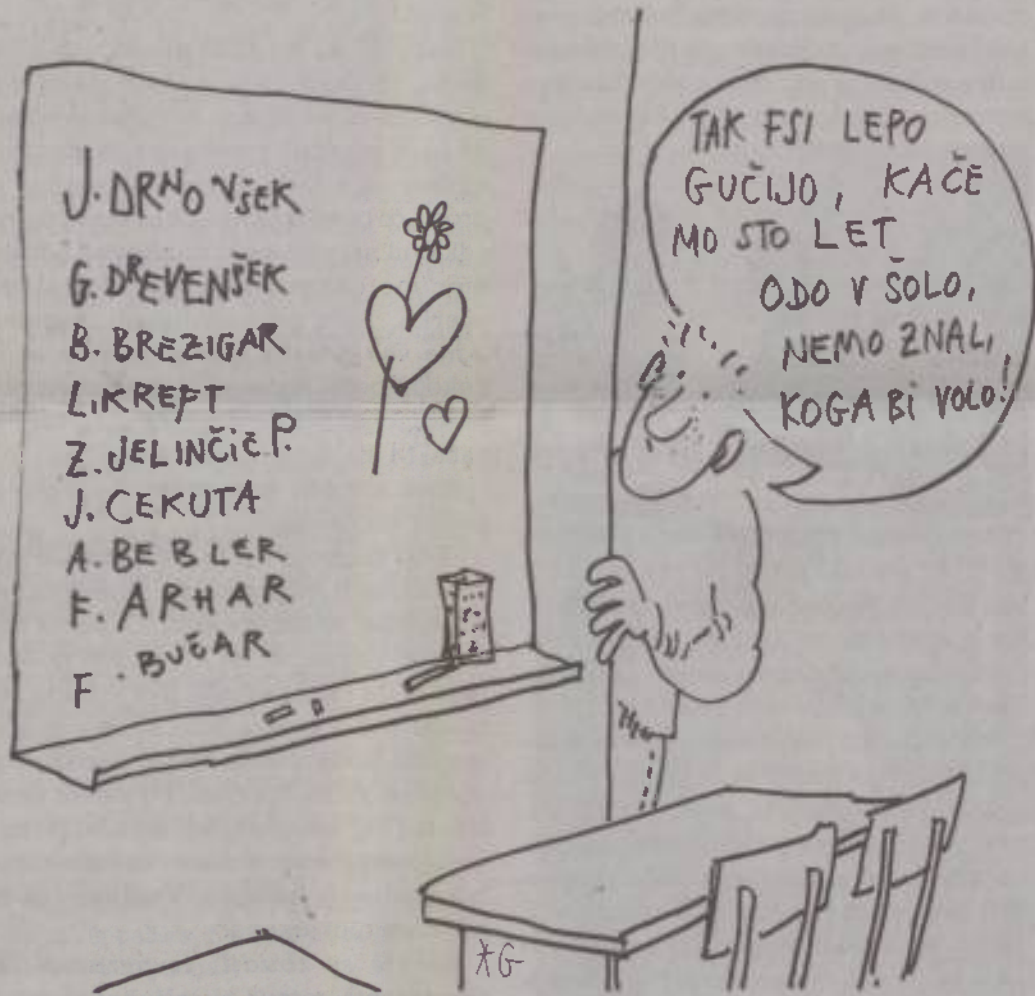 J. DRNOVŠEK
G. DREVENŠEK
B. BREZIGAR
L. KREFT
Z. JELINČIČ P.
J. CEKUTA
A. BEBLER
F. ARHAR
F. BUČAR
TAK FSI LEPO
GUČIJO, KAČĒ
MO STO LET
ODO V ŠOLO,
NEMO ZNALI,
KOGA BI VOLO!
*G